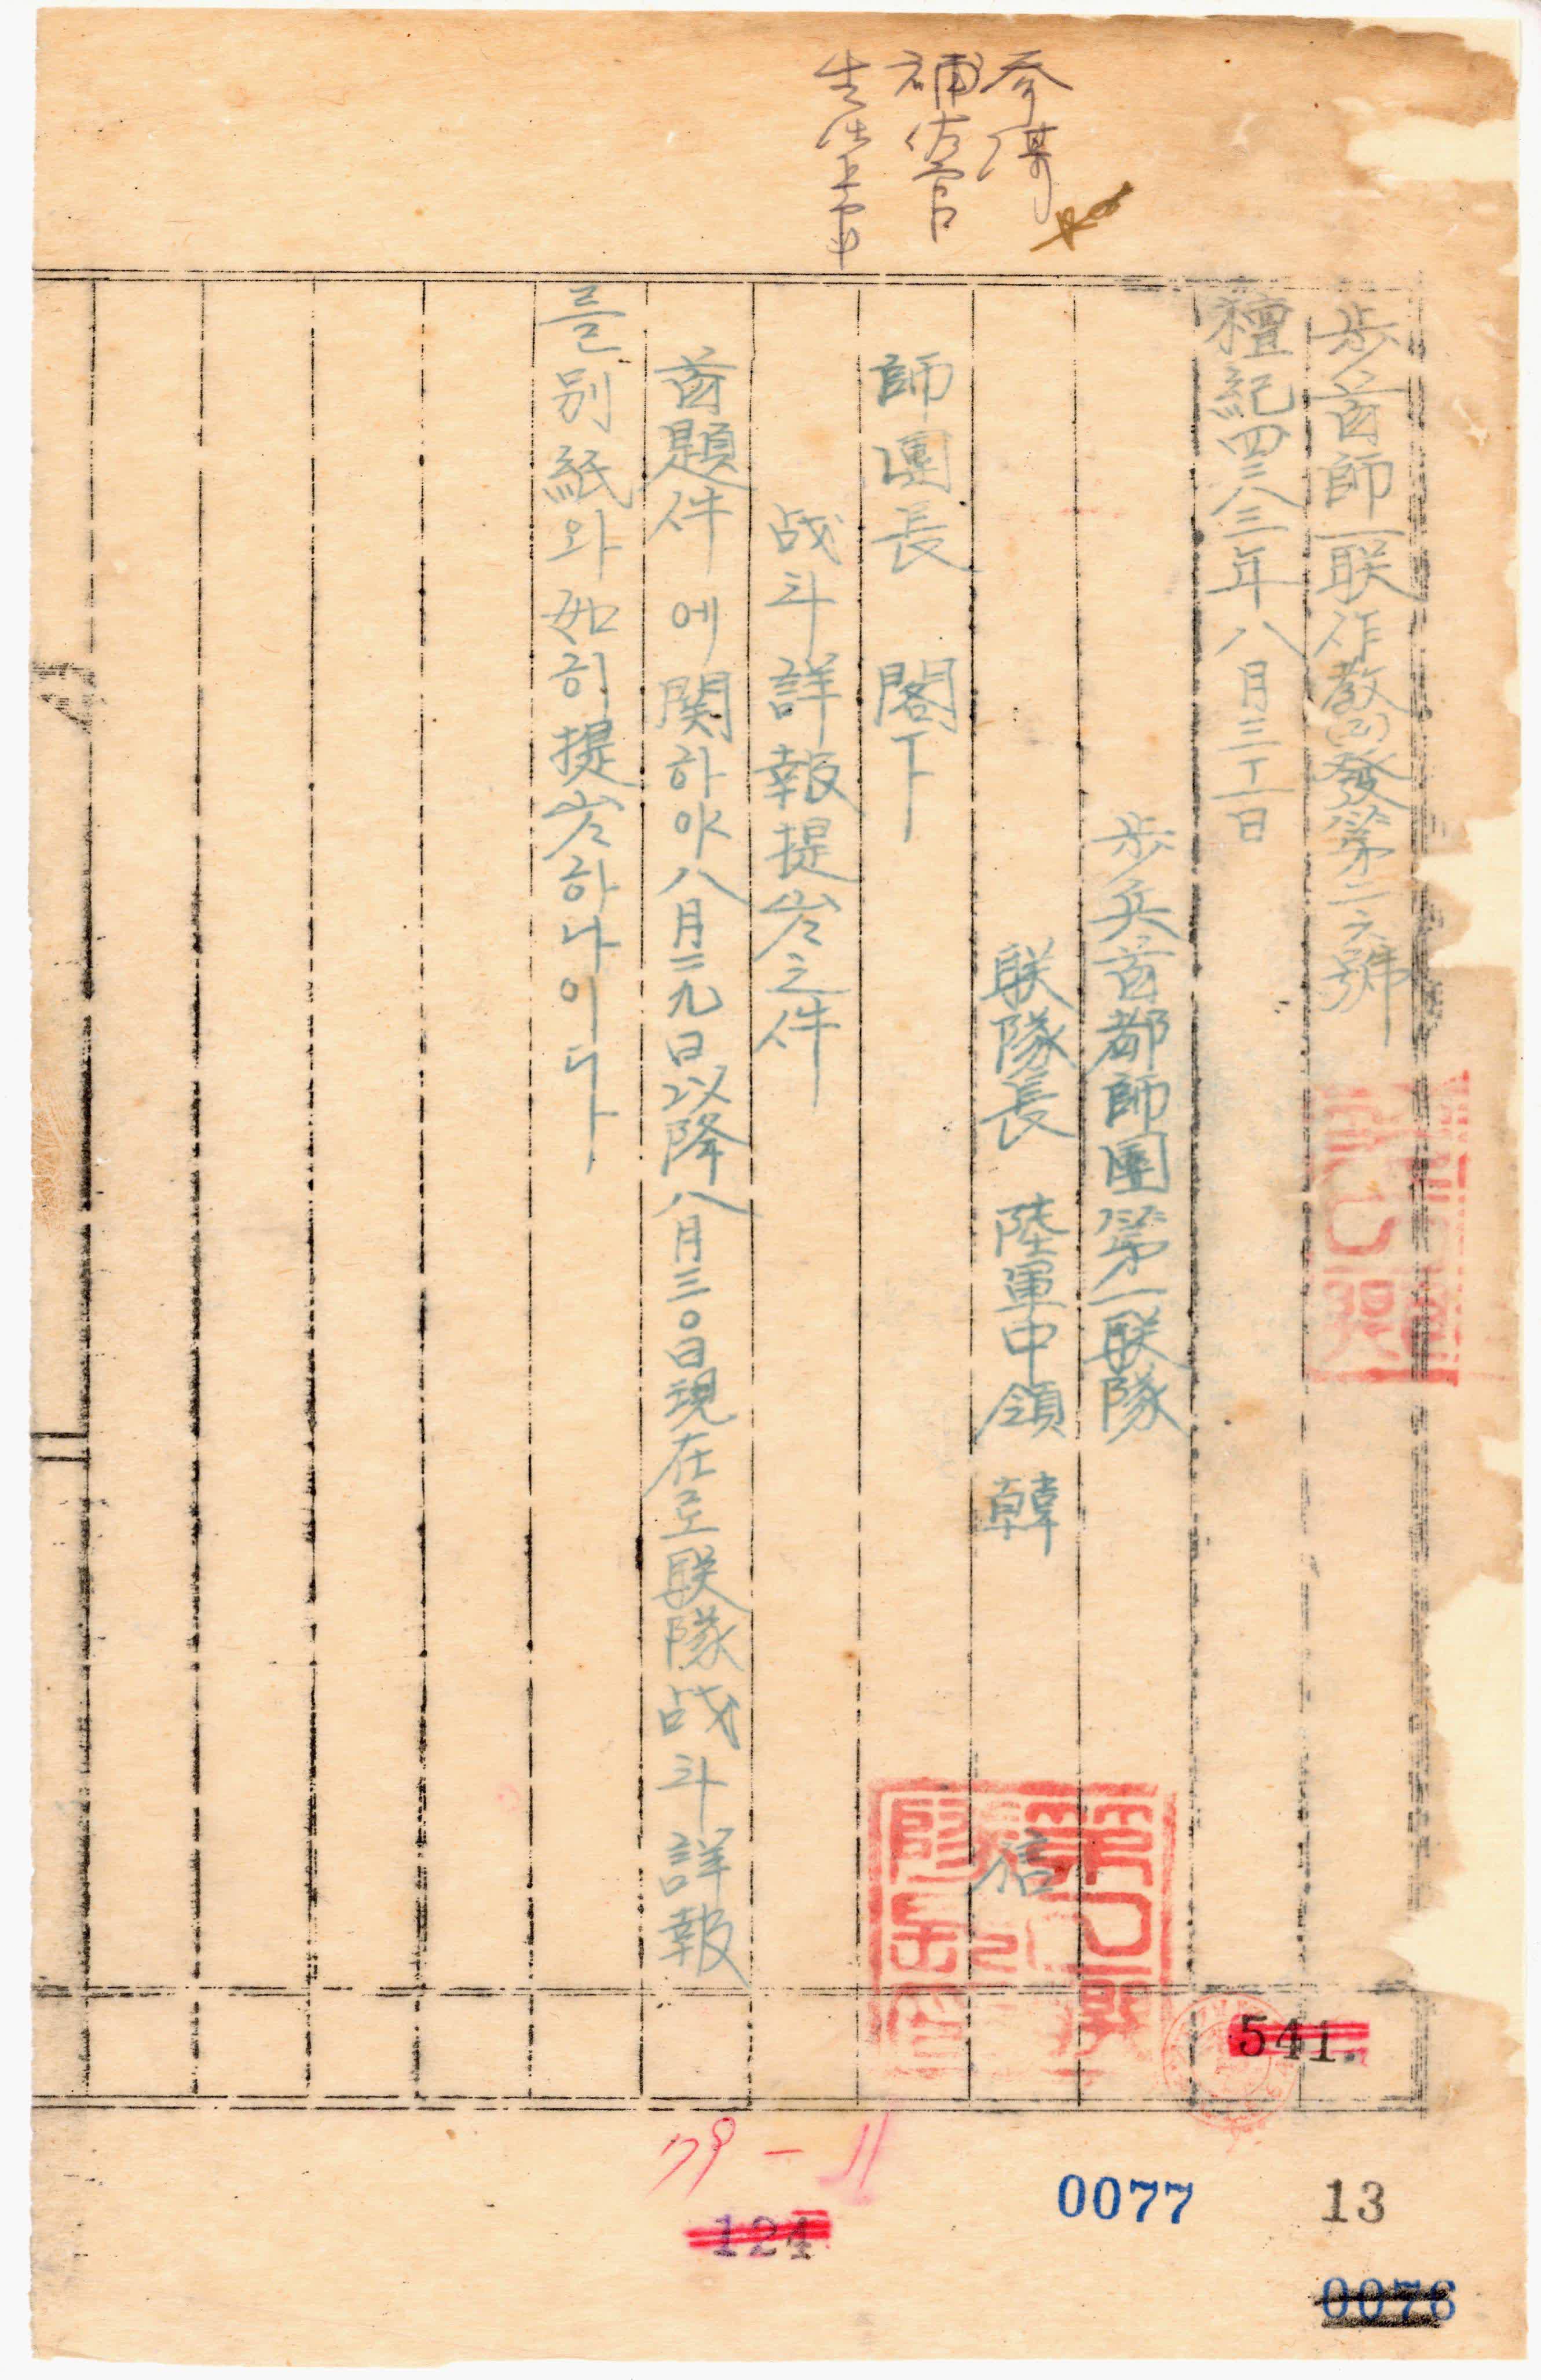 參謀
補佐官
步首師一联作敎(3)發第二六號
檀紀四二八三年八月三十一日
步兵首都師團第一联隊
联隊長 陸軍中領 韓 信
師團長 閣下
战斗詳報提出之件
首題件에関하야八月二九日以降八月三〇日現在로联隊战斗詳報
를別紙와如히提出하나이다
541.
79-11
124
0077
13
0076